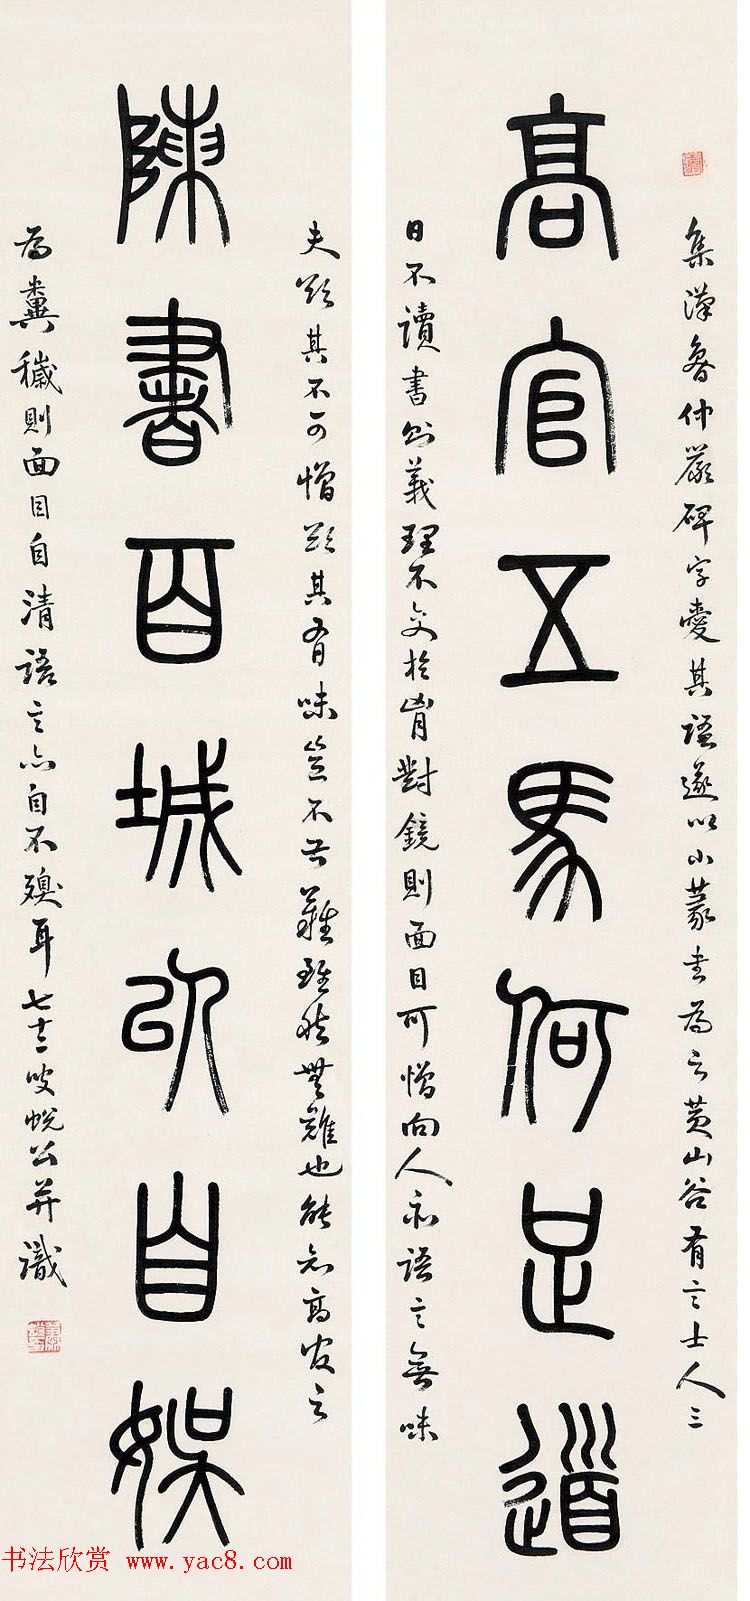 高官五馬何足道
集漢魯仲嚴碑字愛其語遂以小篆書為之黃山谷有言士人三
日不讀書則義理不交於胷對鏡則面目可憎向人亦語言無味
陳書百城以自娛
夫欲其不可憎欲其有味豈不甚難雖然無難也能知高官之
為糞穢則面目自清語言亦自不
耳七十二叟蛻公并識
书法欣赏 www.yac8.com